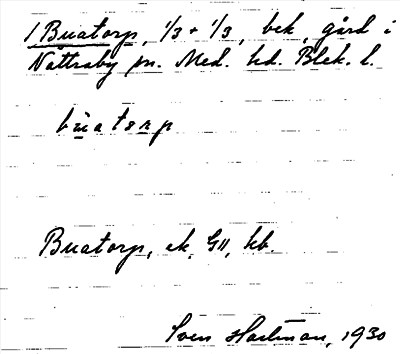 1 Buatorp, 1/3 + 1/3, bek, gård i
Nättraby sn. Med. hd. Blek. l.
bu̲ato̲rp
Buatorp, ek, GII, hb.
Sven Hartman, 1930